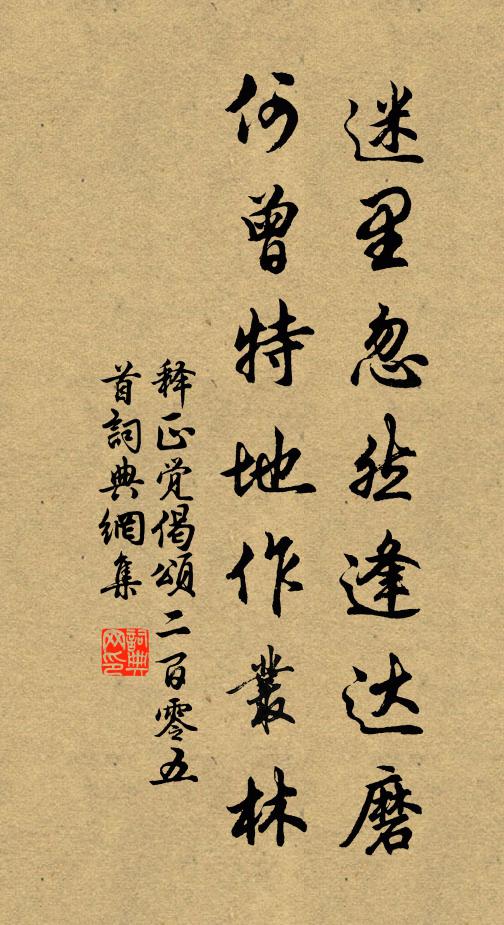 迷里忽然逢达磨
何曾特地作叢林
释正觉偈頌二百零五
首詞典網集
詞典
网印